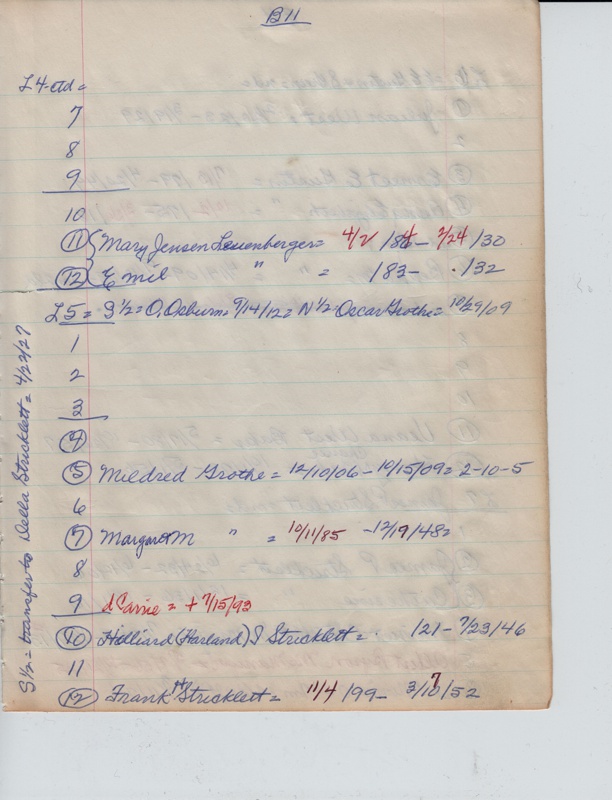 B11
L4-ctd=
7
8
9
10
⑪ { Mary Jensen Leuenberger= 4/2/84- 2/24/30
⑫ { Emil " " = /83- ./32
L5= S½= O. Osburn= 9/14/12= N½ Oscar Grothe= 10/29/09
1
2
3
④
⑤ Mildred Grothe= 12/10/06-10/15/09= 2-10-5
6
⑦ Margaret M " = 10/11/85 -12/19/48=
8
9 d Carrie= + 7/15/93
⑩ Holliard (Harland) S Stricklett= . /21- 7/23/46
11
⑫ Frank H Stricklett= 11/4/99- 3/17/52
S½= transfer to Della Stricklett= 4/22/27